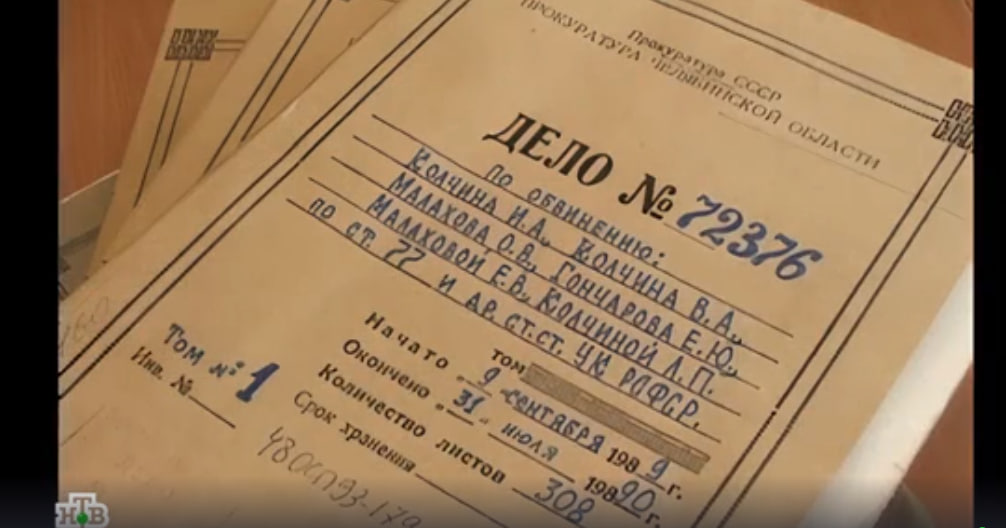 Прокуратура СССР
ПРОКУРАТУРА ЧЕЛЯБИНСКОЙ ОБЛАСТИ
ДЕЛО № 72376
по обвинению:
Колчина И.А., Колчина В.А.,
Малахова О.В., Гончарова Е.Ю.,
Малаховой Е.В., Колчиной Л.П.
по ст. 77 и др. ст.ст. УК РСФСР.
том
Начато „9" сентября 1989 г.
Окончено „31" июля 19890 г.
Количество листов 308
Срок хранения
Том № 1
Инв. №
НТВ